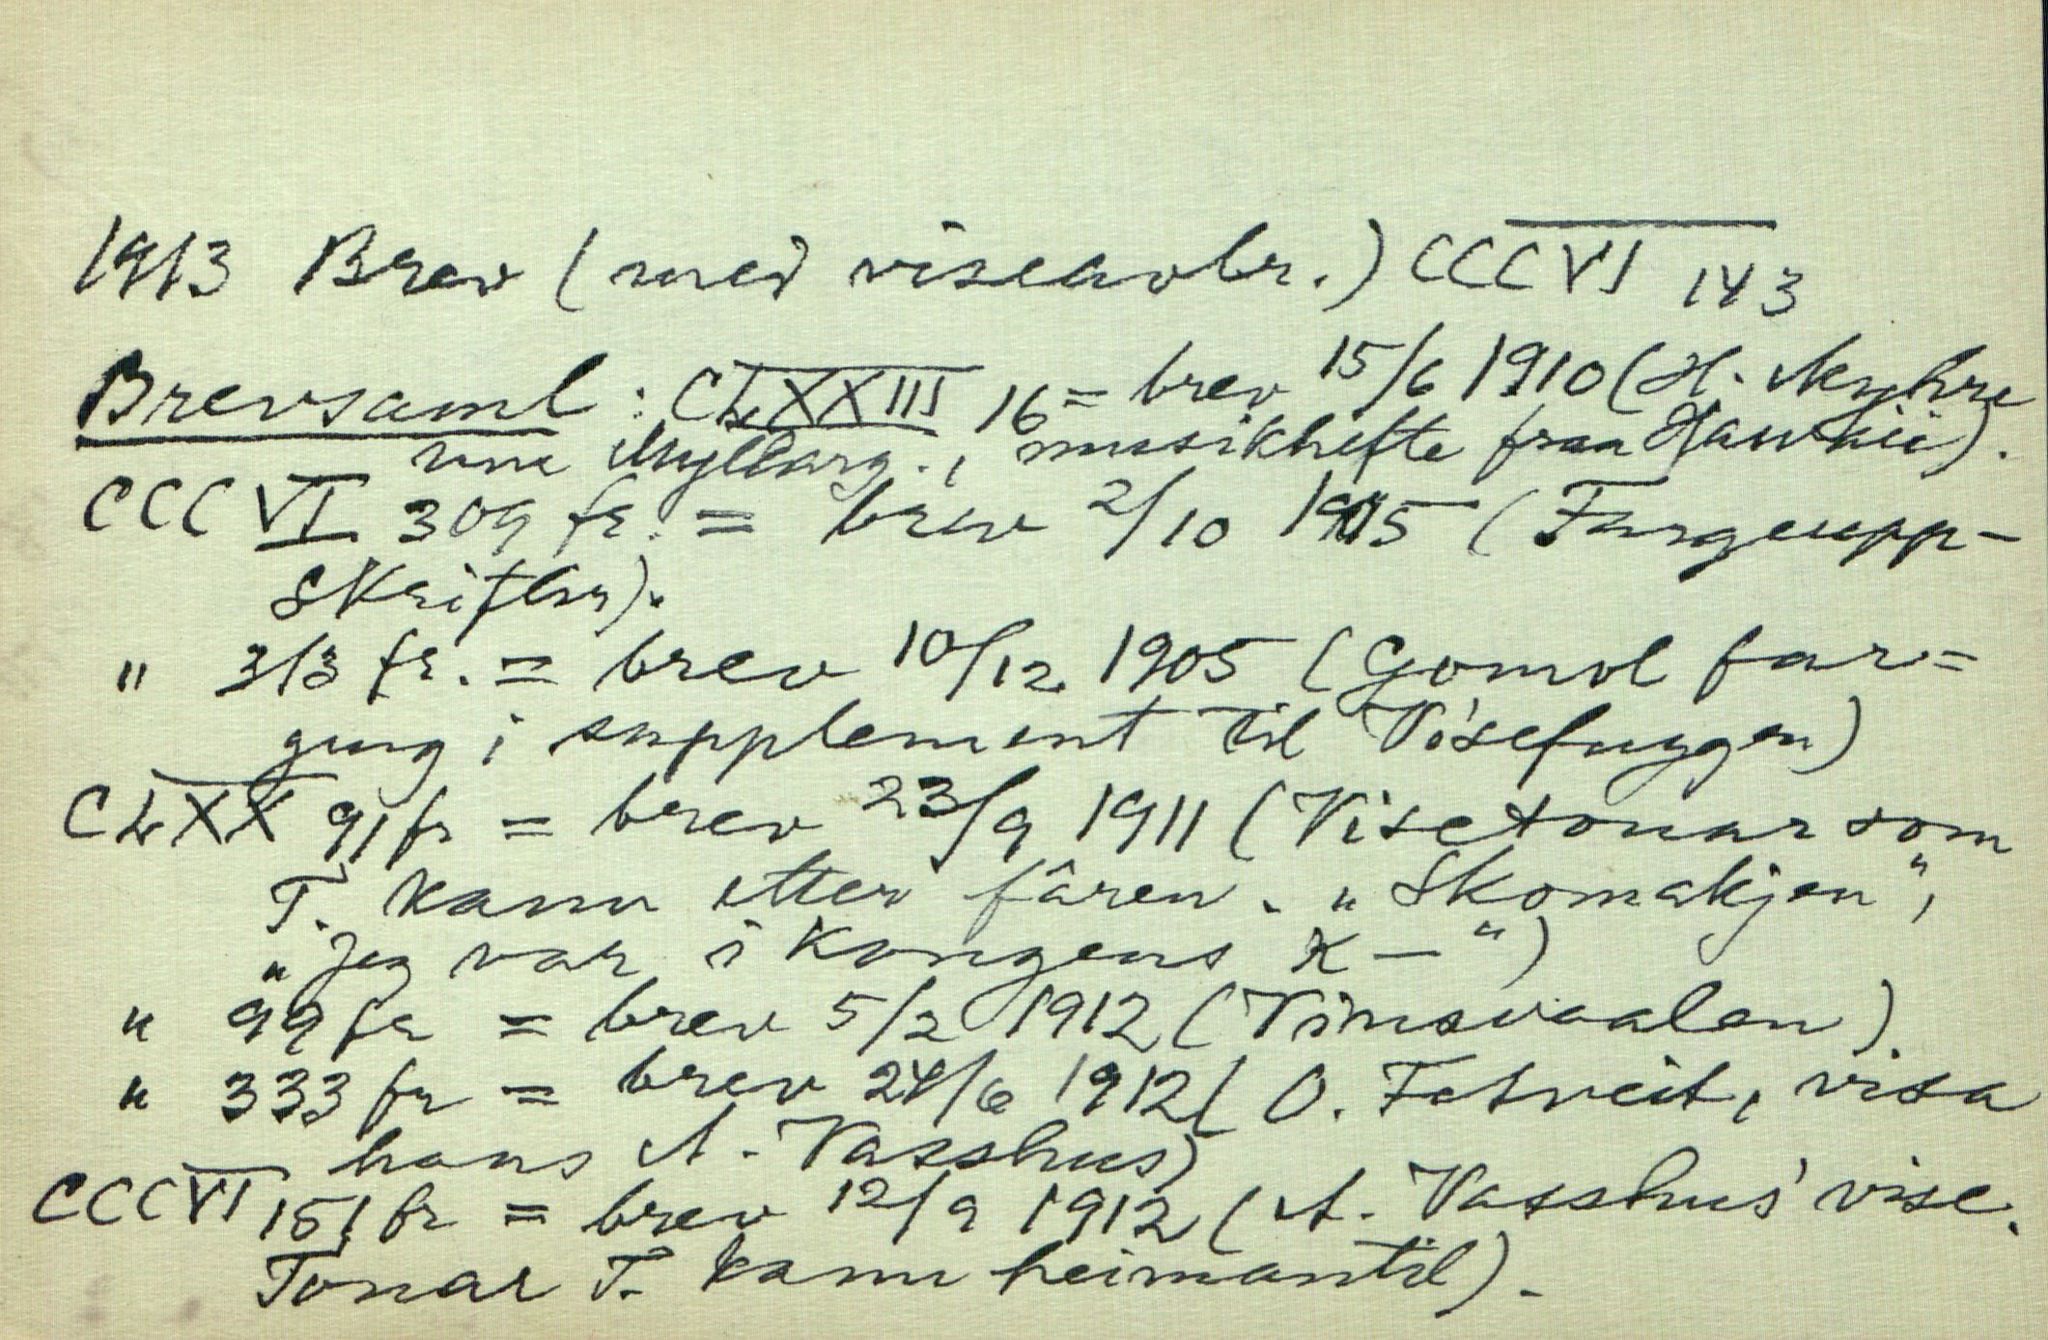 1913 Brev (med viseavbr.) CCCVI 143
Brevsaml: CLXXIII 16 = brev 15/6 1910 (H. Myhre
um Myllarg., musikhefte fraa Hawaii).
CCCVI 309 fr. = brev 2/10 1905 (Fargeupp-
skrifter).
" 313 fr. = brev 10/12 1905 (Gomol far=
ging i supplement til Visefuggen)
CLXX 91 fr = brev 23/9 1911 (Visetonar som
T. kann etter fâren. „Skomakjen",
„Jeg var i kongens K—")
" 99 fr = brev 5/2 1912 (Vinsvaalen)
" 333 fr = brev 24/6 1912 (O. Fatveit, visa
hans A. Vasshus)
CCCVI 151 fr = brev 12/9 1912 (A. Vasshus' vise.
Tonar T. kann heimantil).